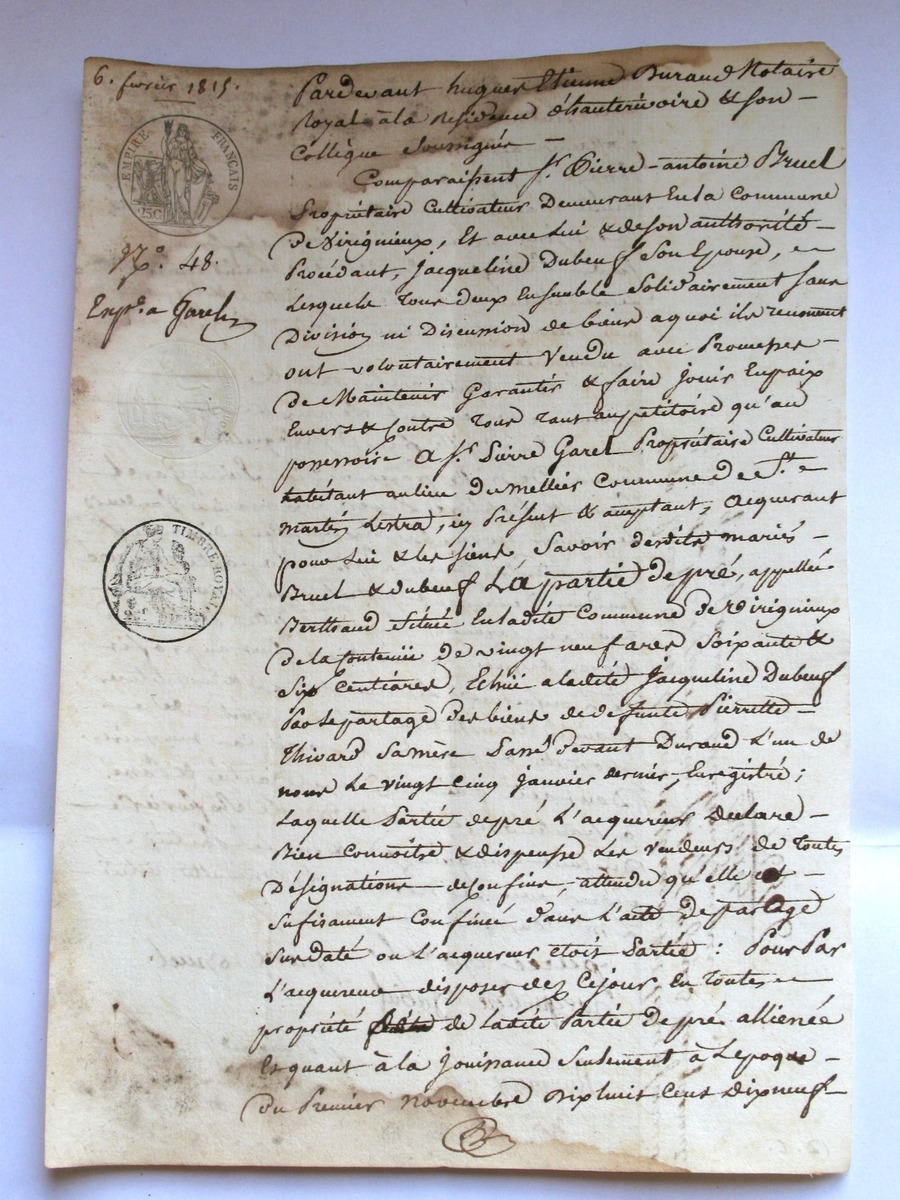 6. fevrier 1815.
EMPIRE FRANÇAIS
25C
N.º 48.
Exp.e a Garel
TIMBRE ROYAL
Pardevant hugues Etienne Durand Notaire
Royal à la Residence d'hauterivoire & son
Collègue Soussignés
Comparaissent Sr. Pierre-antoine Bruel
Propriétaire Cultivateur Demeurant En la Commune
de Virigneux, Et avec Lui & de son authorité
Procédant, Jacqueline Dubeuf Son Epouse,
Lesquels tous deux Ensemble Solidairement sans
Division ni Discussion de biens a quoi ils renoncent
ont volontairement Vendu avec Promesses
de Maintenir Garantir & faire Jouir En paix
Envers & Contre tous tant au petitoire qu'au
possessoire A Sr. Pierre Garel Propriétaire Cultivateur
habitant au lieu du mellier Commune de St.
martin Lestra, icy Présent & acceptant, acquerant
pour Lui & les siens Savoir desdits mariés
Bruel & dubeuf La partie de pré, appellée
Berthaud située En ladite Commune de Virigneux
de la Contenue de vingt neuf ares Soixante &
Six Centiares, Echue a ladite Jacqueline Dubeuf
Par Le partage des biens de defunte Pierrette
Thivard Sa mère Passé devant Durand L'un de
nous Le vingt cinq Janvier dernier, Enregistré;
Laquelle Partie de pré L'acquereur declare
Bien connoitre & dispense Les Vendeurs de toutes
Désignations de Confins, attendu qu'elle est
Sufisament Confinée dans L'acte de partage
Sus daté ou L'acquereur étoit Partie : Pour Par
L'acquereur disposer dez Ce jour En toute
propriété de Ladite Partie de pré alliénée
Et quant à la Jouissance Seulement à L'epoque
du Premier novembre Dix huit Cent Dix neuf